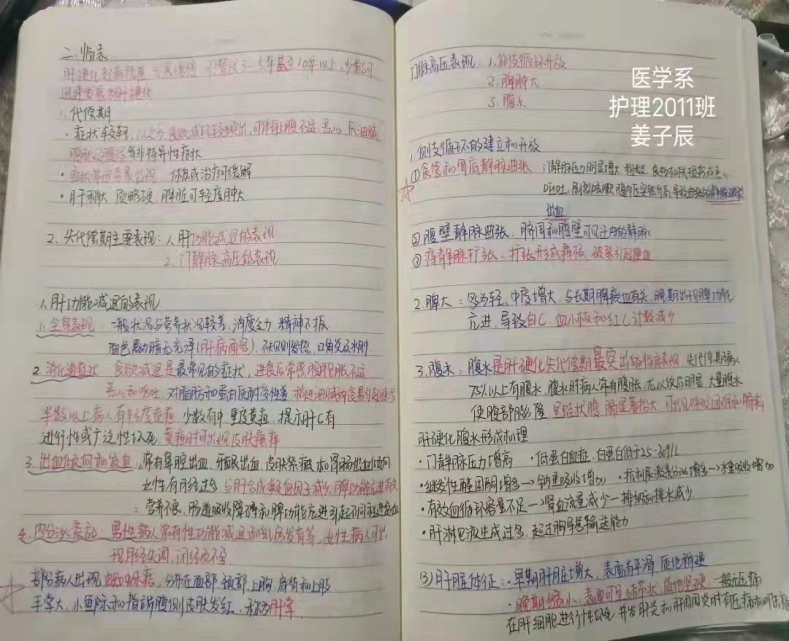 二.临表
肝硬化起病隐匿 发展缓慢 可潜伏3-5年甚至10年以上,少数
迅速发展为肝硬化
1.代偿期
·症状较轻,以乏力 食欲减轻 可伴有上腹不适 恶心 厌油腻
腹泻等非特异性症状
休息或治疗可缓解
·肝稍大 质略硬 脾脏可轻度肿大
2.失代偿期主要表现:1.肝功能减退的表现
2.门静脉高压的表现
1.肝功能减退的表现
1.全身表现:一般状况与营养状况较差,消瘦乏力 精神不振
面色黝暗无光泽(肝病面容) 不规则发热,口角炎及水肿
2.消化道症状 食欲减退是最常见的症状,进食后常感腹胀不适
恶心和呕吐,对脂肪和蛋白质耐受性差
半数以上病人有轻度黄疸,少数有中、重度黄疸,提示肝C有
进行性或广泛性坏死
3.出血倾向和贫血,常有鼻腔出血,牙龈出血,皮肤紫癜和胃肠出血倾向
女性有月经过多 与肝合成凝血因子减少,脾功能亢进有关
营养不良 肠道吸收障碍和脾功能亢进引起不同程度贫血
4.内分泌紊乱:男性病人常有性功能减退和乳房发育等,女性病人可出
现月经失调,闭经或不孕
部分病人出现蜘蛛痣,分布在面部 颈部,上胸 肩背和上肢
手掌大、小鱼际和指端腹侧皮肤发红,称为肝掌
门脉高压表现:1.侧支循环开放
2.脾肿大
3.腹水
1.侧支循环的建立和开放
①食管和胃底静脉曲张
出血
②腹壁静脉曲张:脐周和腹壁可见迂曲的静脉
③痔静脉扩张,扩张形成痔核 破裂引起便血
2.脾大:多为轻、中度增大,与长期脾瘀血有关,晚期出现脾功能
亢进,导致白C、血小板和红C计数减少
3.腹水:腹水是肝硬化失代偿期最突出的临床表现 失代偿期病人
75%以上有腹水 腹水时病人常有腹胀,尤以饭后明显 大量腹水
使腹部膨隆 呈蛙状腹
肝硬化腹水形成机理
·门静脉压力增高 ·低蛋白血症,白蛋白低于25-30g/L
·继发性醛固酮增多→钠重吸收增加 ·抗利尿激素分泌增多→水重吸收增加
·有效血循环容量不足→肾血流量减少→排钠和排水减少
·肝淋巴液生成过多,超过胸导管输送能力
(3)肝脏体征:·早期肝脏增大,表面尚平滑 质地稍硬
·晚期缩小,表面可呈结节状,质地坚硬 一般无压痛
在肝细胞进行性坏死 并发肝炎和肝周围炎时有压痛
医学系
护理2011班
姜子辰